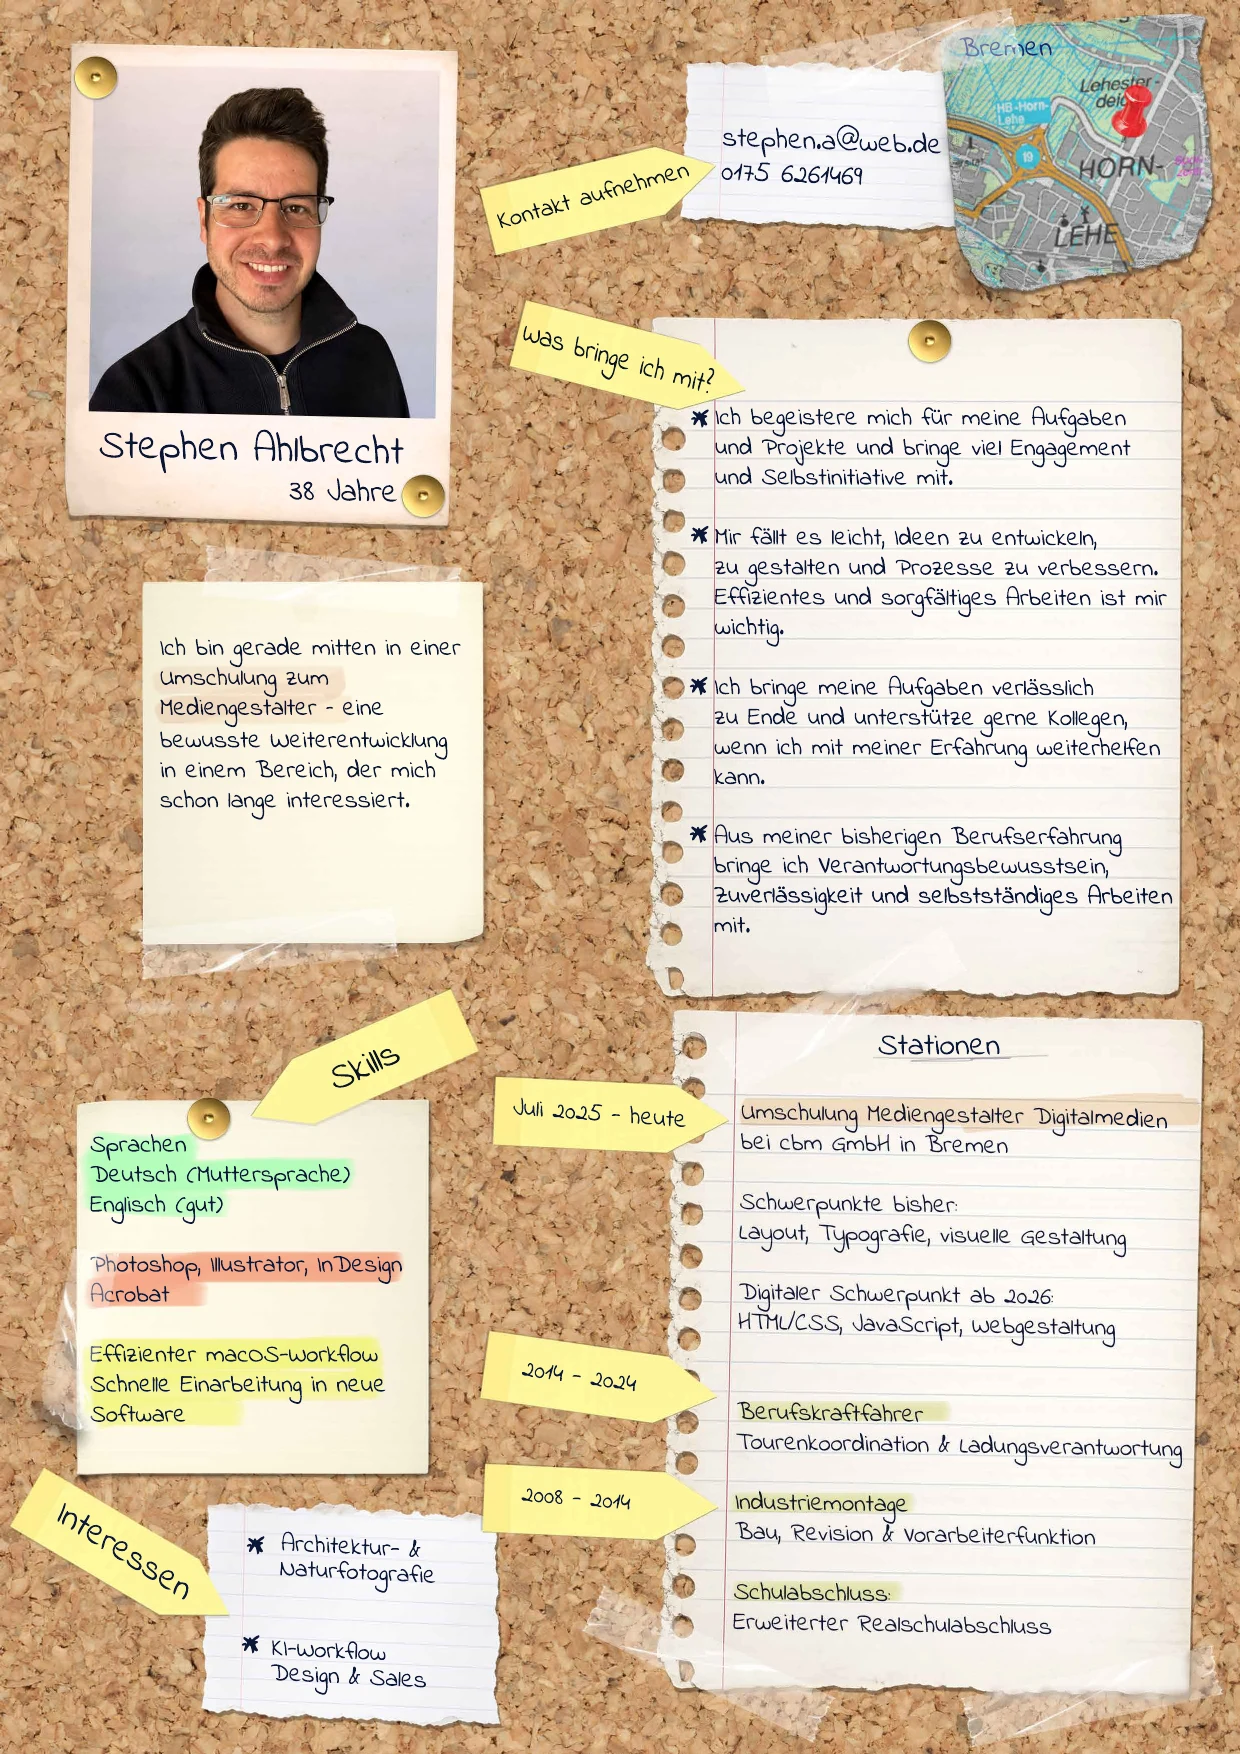 Stephen Ahlbrecht
38 Jahre
Kontakt aufnehmen
stephen.a@web.de
0175 6261469
Bremen
Lehester-
deich
HB-Horn-
Lehe
19
HORN-
LEHE
Was bringe ich mit?
Ich begeistere mich für meine Aufgaben
und Projekte und bringe viel Engagement
und Selbstinitiative mit.
Mir fällt es leicht, Ideen zu entwickeln,
zu gestalten und Prozesse zu verbessern.
Effizientes und sorgfältiges Arbeiten ist mir
wichtig.
Ich bringe meine Aufgaben verlässlich
zu Ende und unterstütze gerne Kollegen,
wenn ich mit meiner Erfahrung weiterhelfen
kann.
Aus meiner bisherigen Berufserfahrung
bringe ich Verantwortungsbewusstsein,
Zuverlässigkeit und selbstständiges Arbeiten
mit.
Ich bin gerade mitten in einer
Umschulung zum
Mediengestalter - eine
bewusste Weiterentwicklung
in einem Bereich, der mich
schon lange interessiert.
Skills
Sprachen
Deutsch (Muttersprache)
Englisch (gut)
Photoshop, Illustrator, InDesign
Acrobat
Effizienter macOS-Workflow
Schnelle Einarbeitung in neue
Software
Interessen
Architektur- &
Naturfotografie
KI-Workflow
Design & Sales
Stationen
Juli 2025 - heute
Umschulung Mediengestalter Digitalmedien
bei cbm GmbH in Bremen
Schwerpunkte bisher:
Layout, Typografie, visuelle Gestaltung
Digitaler Schwerpunkt ab 2026:
HTML/CSS, JavaScript, Webgestaltung
2014 - 2024
Berufskraftfahrer
Tourenkoordination & Ladungsverantwortung
2008 - 2014
Industriemontage
Bau, Revision & Vorarbeiterfunktion
Schulabschluss:
Erweiterter Realschulabschluss